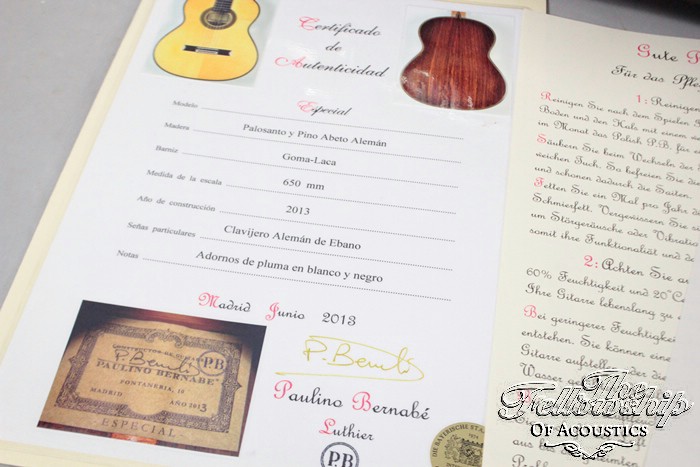 Certificado
de
Autenticidad
Modelo Especial
Madera Palosanto y Pino Abeto Alemán
Barniz Goma-Laca
Medida de la escala 650 mm
Año de construcción 2013
Señas particulares Clavijero Alemán de Ebano
Notas Adornos de pluma en blanco y negro
Madrid Junio 2013
P. Bernabé
Paulino Bernabé
Luthier
P.B
P. Bernabé
PAULINO BERNABE
P.B
FONTANERIA, 10
MADRID
AÑO 2013
ESPECIAL
DIE BAYERISCHE
Gute
Für das Pfle
1: Reinigen
Reinigen Sie nach dem Spielen
Boden und den Hals mit einem
im Monat das Polish P.B. für
Säubern Sie beim Wechseln der
weichen Tuch. So befreien Sie die
und schonen dadurch die Saiten.
Fetten Sie ein Mal pro Jahr
Schmierfett. Vergewissern Sie si
um Störgeräusche oder Vibratio
somit ihre Funktionalität und de
2: Achten Sie a
60% Feuchtigkeit und 20°C
Ihre Gitarre lebenslang zu
Bei geringerer Feuchtigkei
entstehen. Sie können eine
Gitarre aufstellen oder die
Wasser
The
Fellowship
OF ACOUSTICS